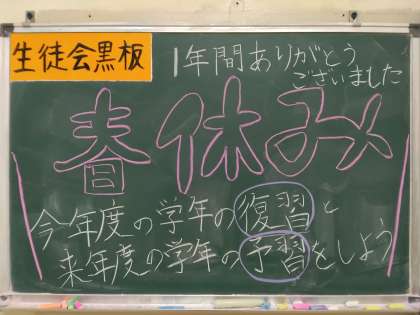 生徒会黒板
1年間ありがとう
ございました
春休み
今年度の学年の復習と
来年度の学年の予習をしよう